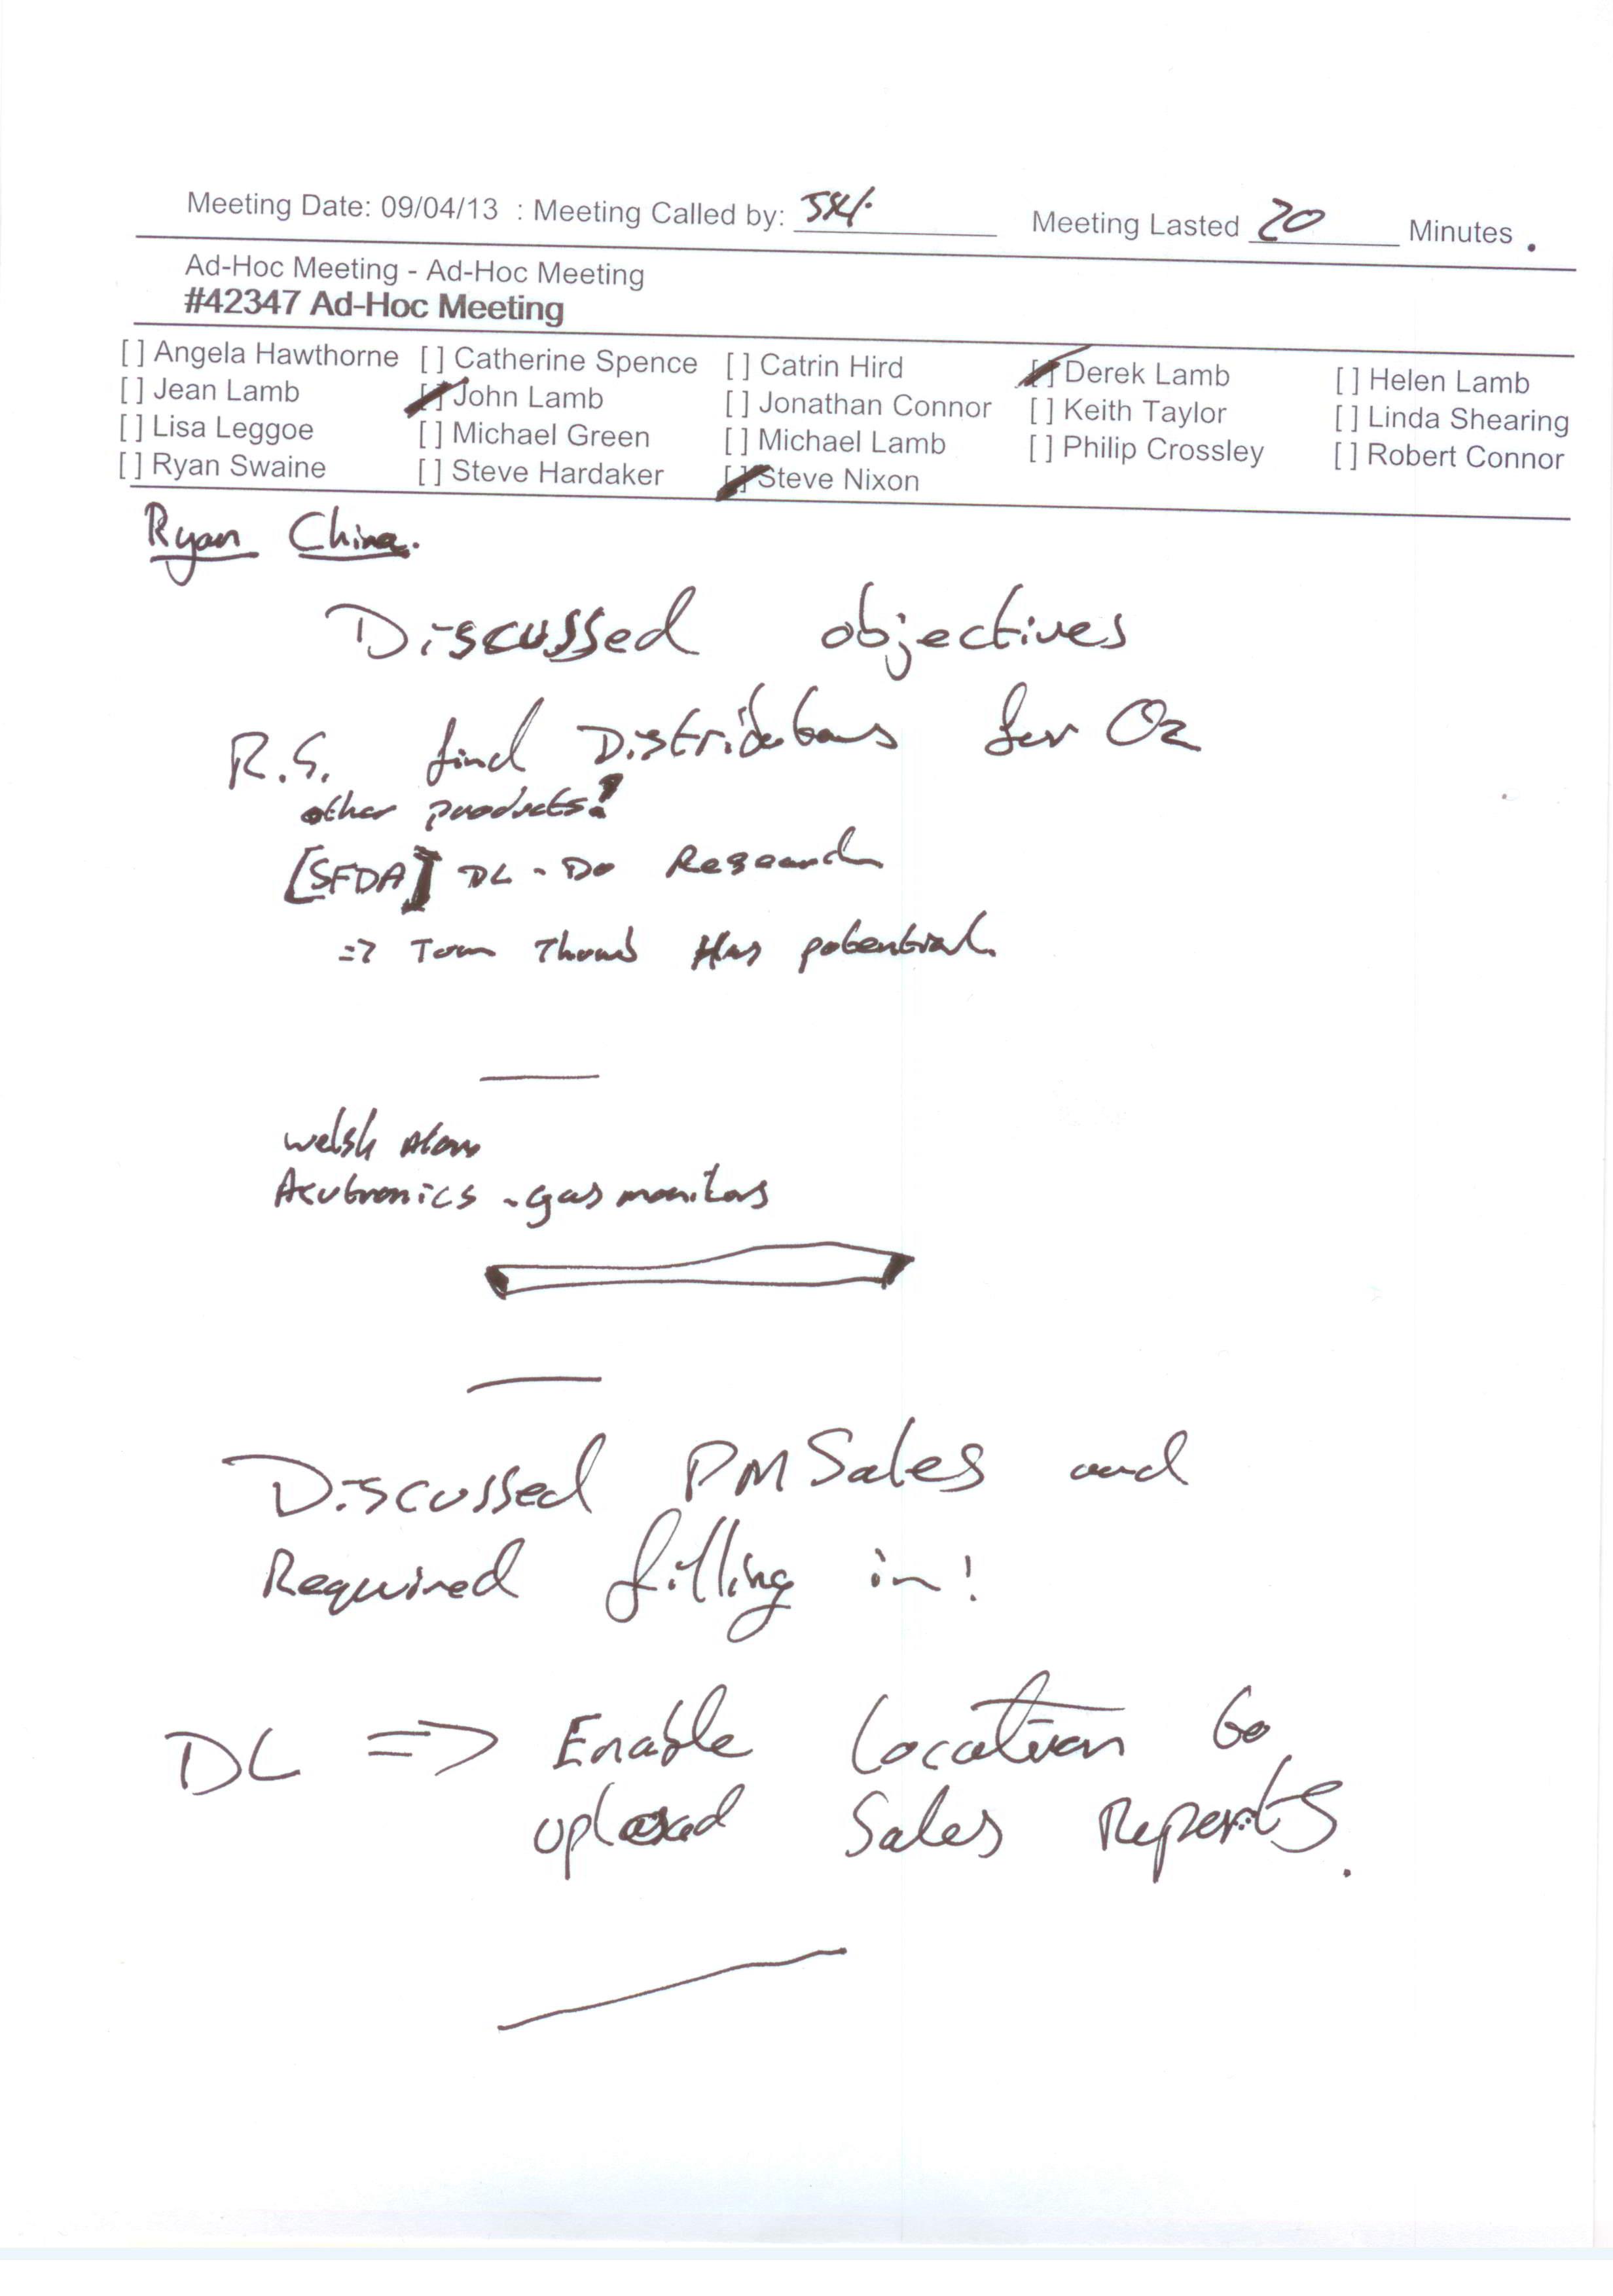 Meeting Date: 09/04/13 : Meeting Called by: Meeting Lasted 20 Minutes.
Ad-Hoc Meeting - Ad-Hoc Meeting
#42347 Ad-Hoc Meeting
[ ] Angela Hawthorne [ ] Catherine Spence [ ] Catrin Hird [ ] Derek Lamb [ ] Helen Lamb
[ ] Jean Lamb [ ] John Lamb [ ] Jonathan Connor [ ] Keith Taylor [ ] Linda Shearing
[ ] Lisa Leggoe [ ] Michael Green [ ] Michael Lamb [ ] Philip Crossley [ ] Robert Connor
[ ] Ryan Swaine [ ] Steve Hardaker [ ] Steve Nixon
Ryan China.
Discussed objectives
R.S. find Distributors for O2
other products!
[SFDA] DL - Do Research
=> Tom Thumb Has potential
welsh
Acutronics - gas monitors
Discussed PM Sales and
Required filling in!
DL => Enable location to
upload Sales Reports.